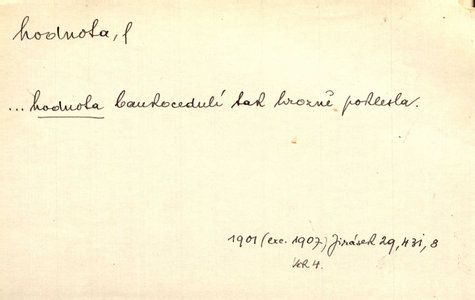 hodnota, f
... hodnota bankocedulí tak hrozně poklesla.
1901 (exc. 1907) Jirásek 29, 431, 8